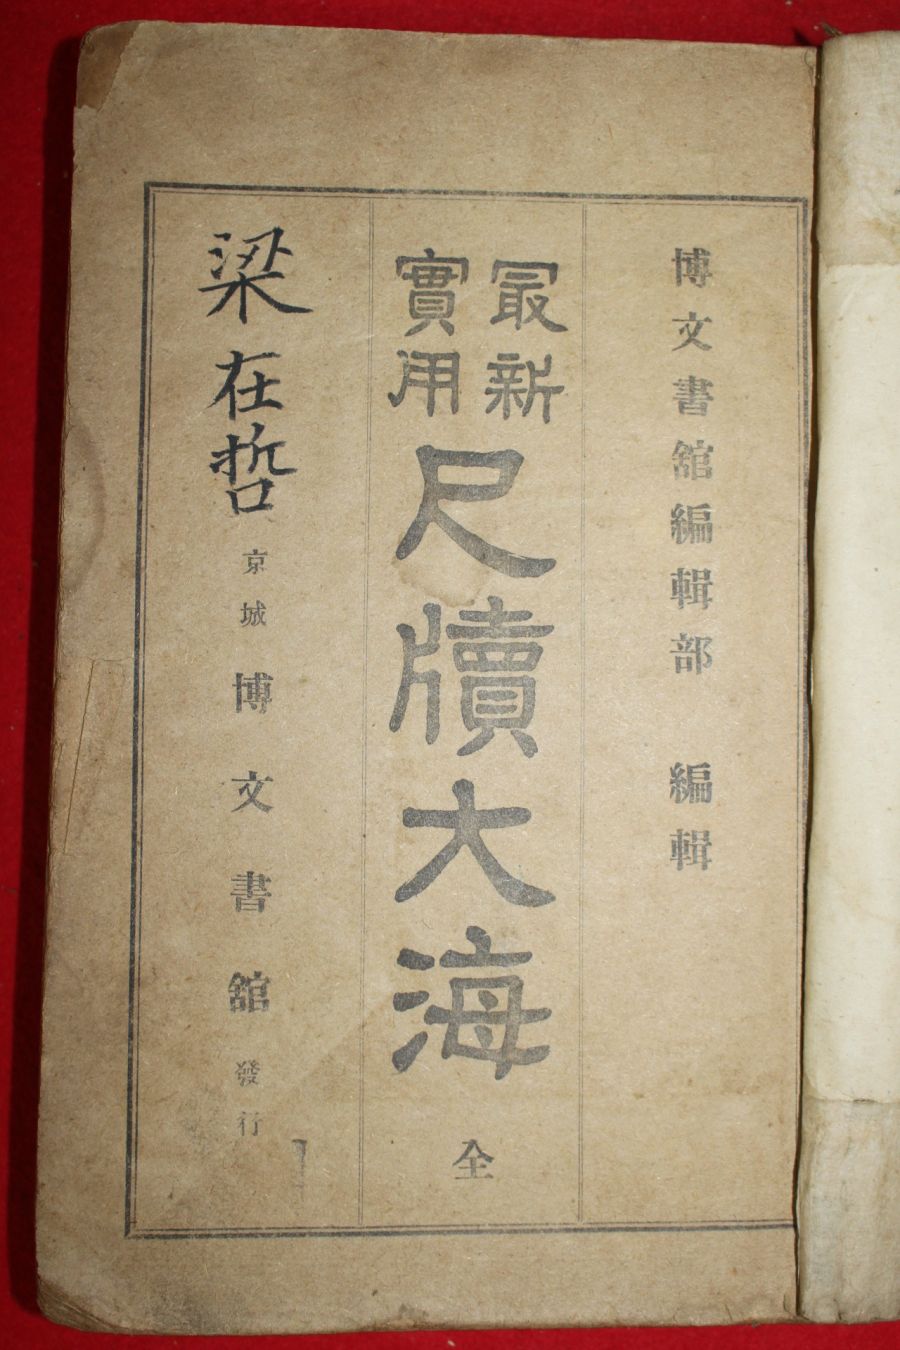 博文書舘編輯部 編輯
最新
實用
尺牘大海 全
梁在哲
京城 博文書舘 發行